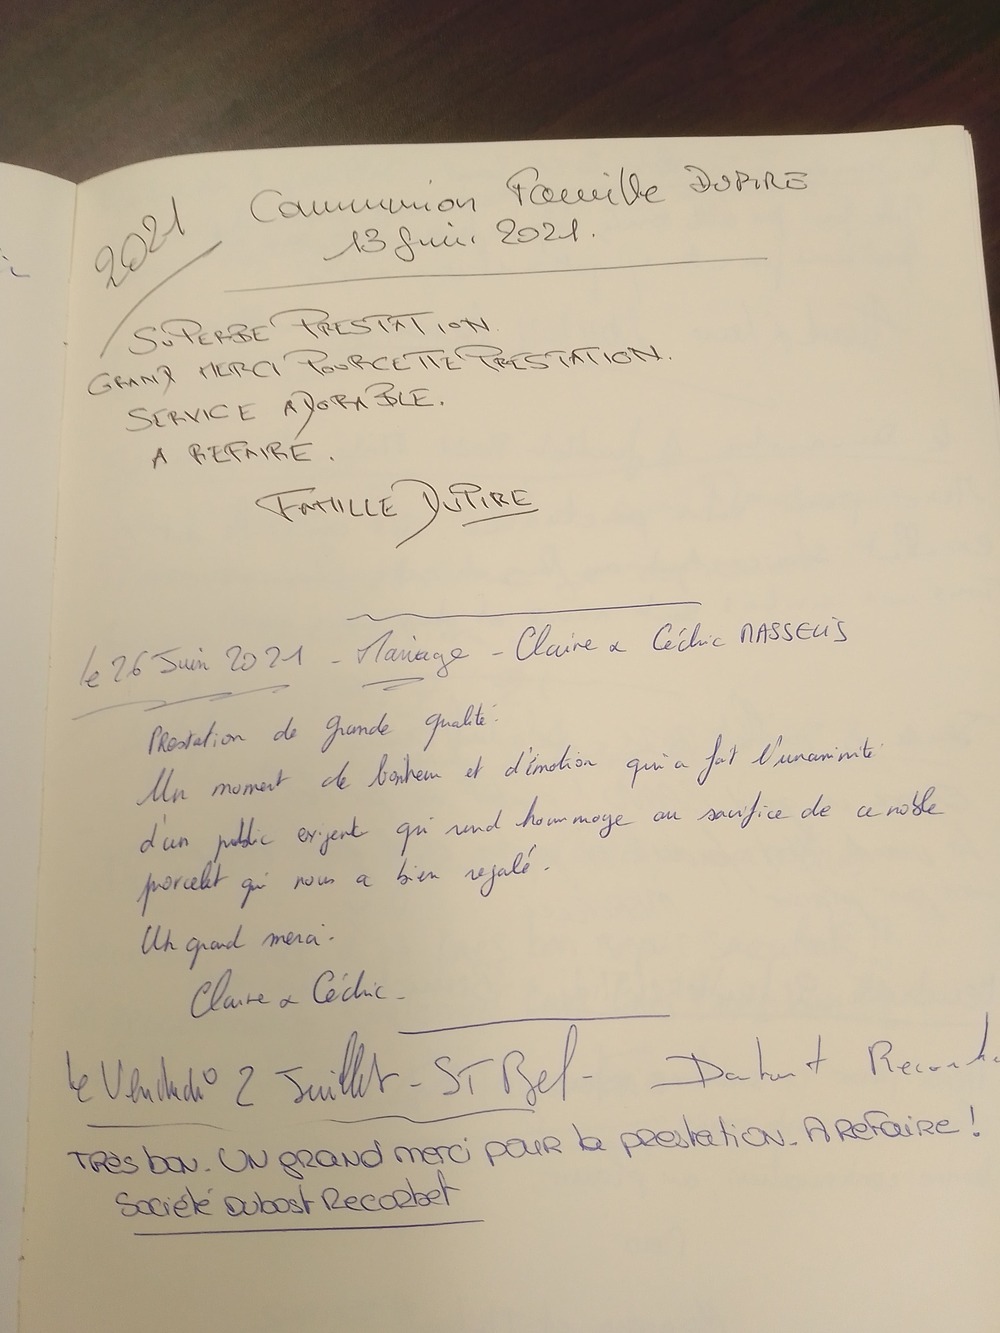 2021
Communion Famille DUPIRE
13 Juin 2021.
SUPERBE PRESTATION.
GRAND MERCI POUR CETTE PRESTATION.
SERVICE ADORABLE.
A REFAIRE.
FAMILLE DUPIRE
le 26 Juin 2021 - Mariage - Claire & Cédric MASSELIS
Prestation de grande qualité.
Un moment de bonheur et d'émotion qui a fait l'unanimité
d'un public exigent qui rend hommage au sacrifice de ce noble
porcelet qui nous a bien regalé.
Un grand merci.
Claire & Cédric.
le Vendredi 2 Juillet - ST Bel -
TRÈS bon. UN GRAND merci pour la prestation. A Refaire !
Société Dubost Recorbet